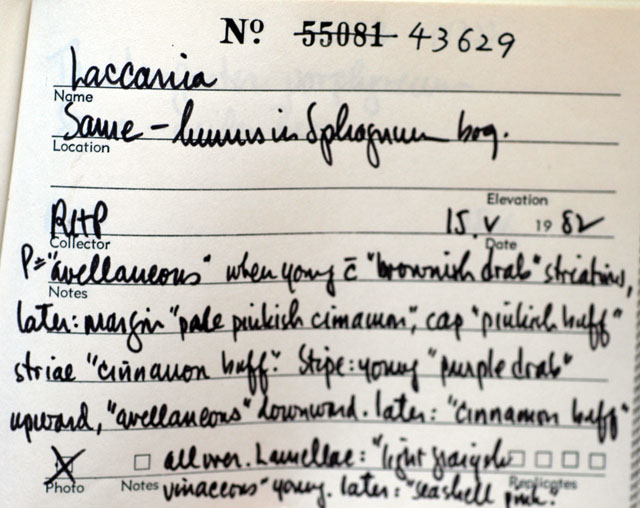 Nº 55081 43629
Laccaria
Name
Same - humus in Sphagnum bog.
Location
Elevation
RHP 15 . V 19 82
Collector Date
P = "avellaneous" when young c̄ "brownish drab" striations,
Notes
later: margin "pale pinkish cinnamon", cap "pinkish buff"
striae "cinnamon buff". Stipe: young "purple drab"
upward, "avellaneous" downward. later: "cinnamon buff"
all over. Lamellae: "light grayish
Photo Notes Replicates
vinaceous" young. later: "seashell pink".